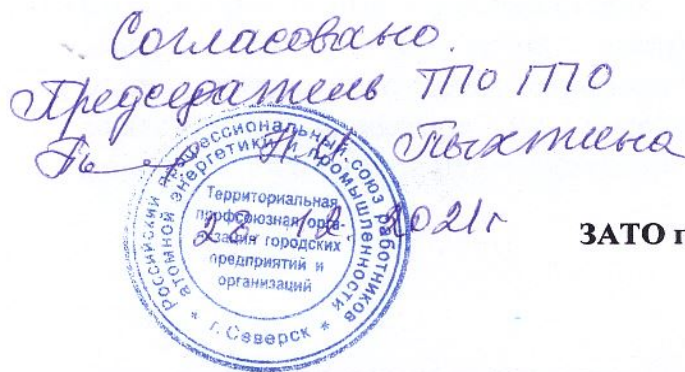 Согласовано.
Председатель ТО ПО
Н.И. Пыхтина
28.12.2021г
Российский профессиональный союз работников
атомной энергетики и промышленности
Территориальная
профсоюзная орга-
низация городских
предприятий и
организаций
* г. Северск *
ЗАТО г